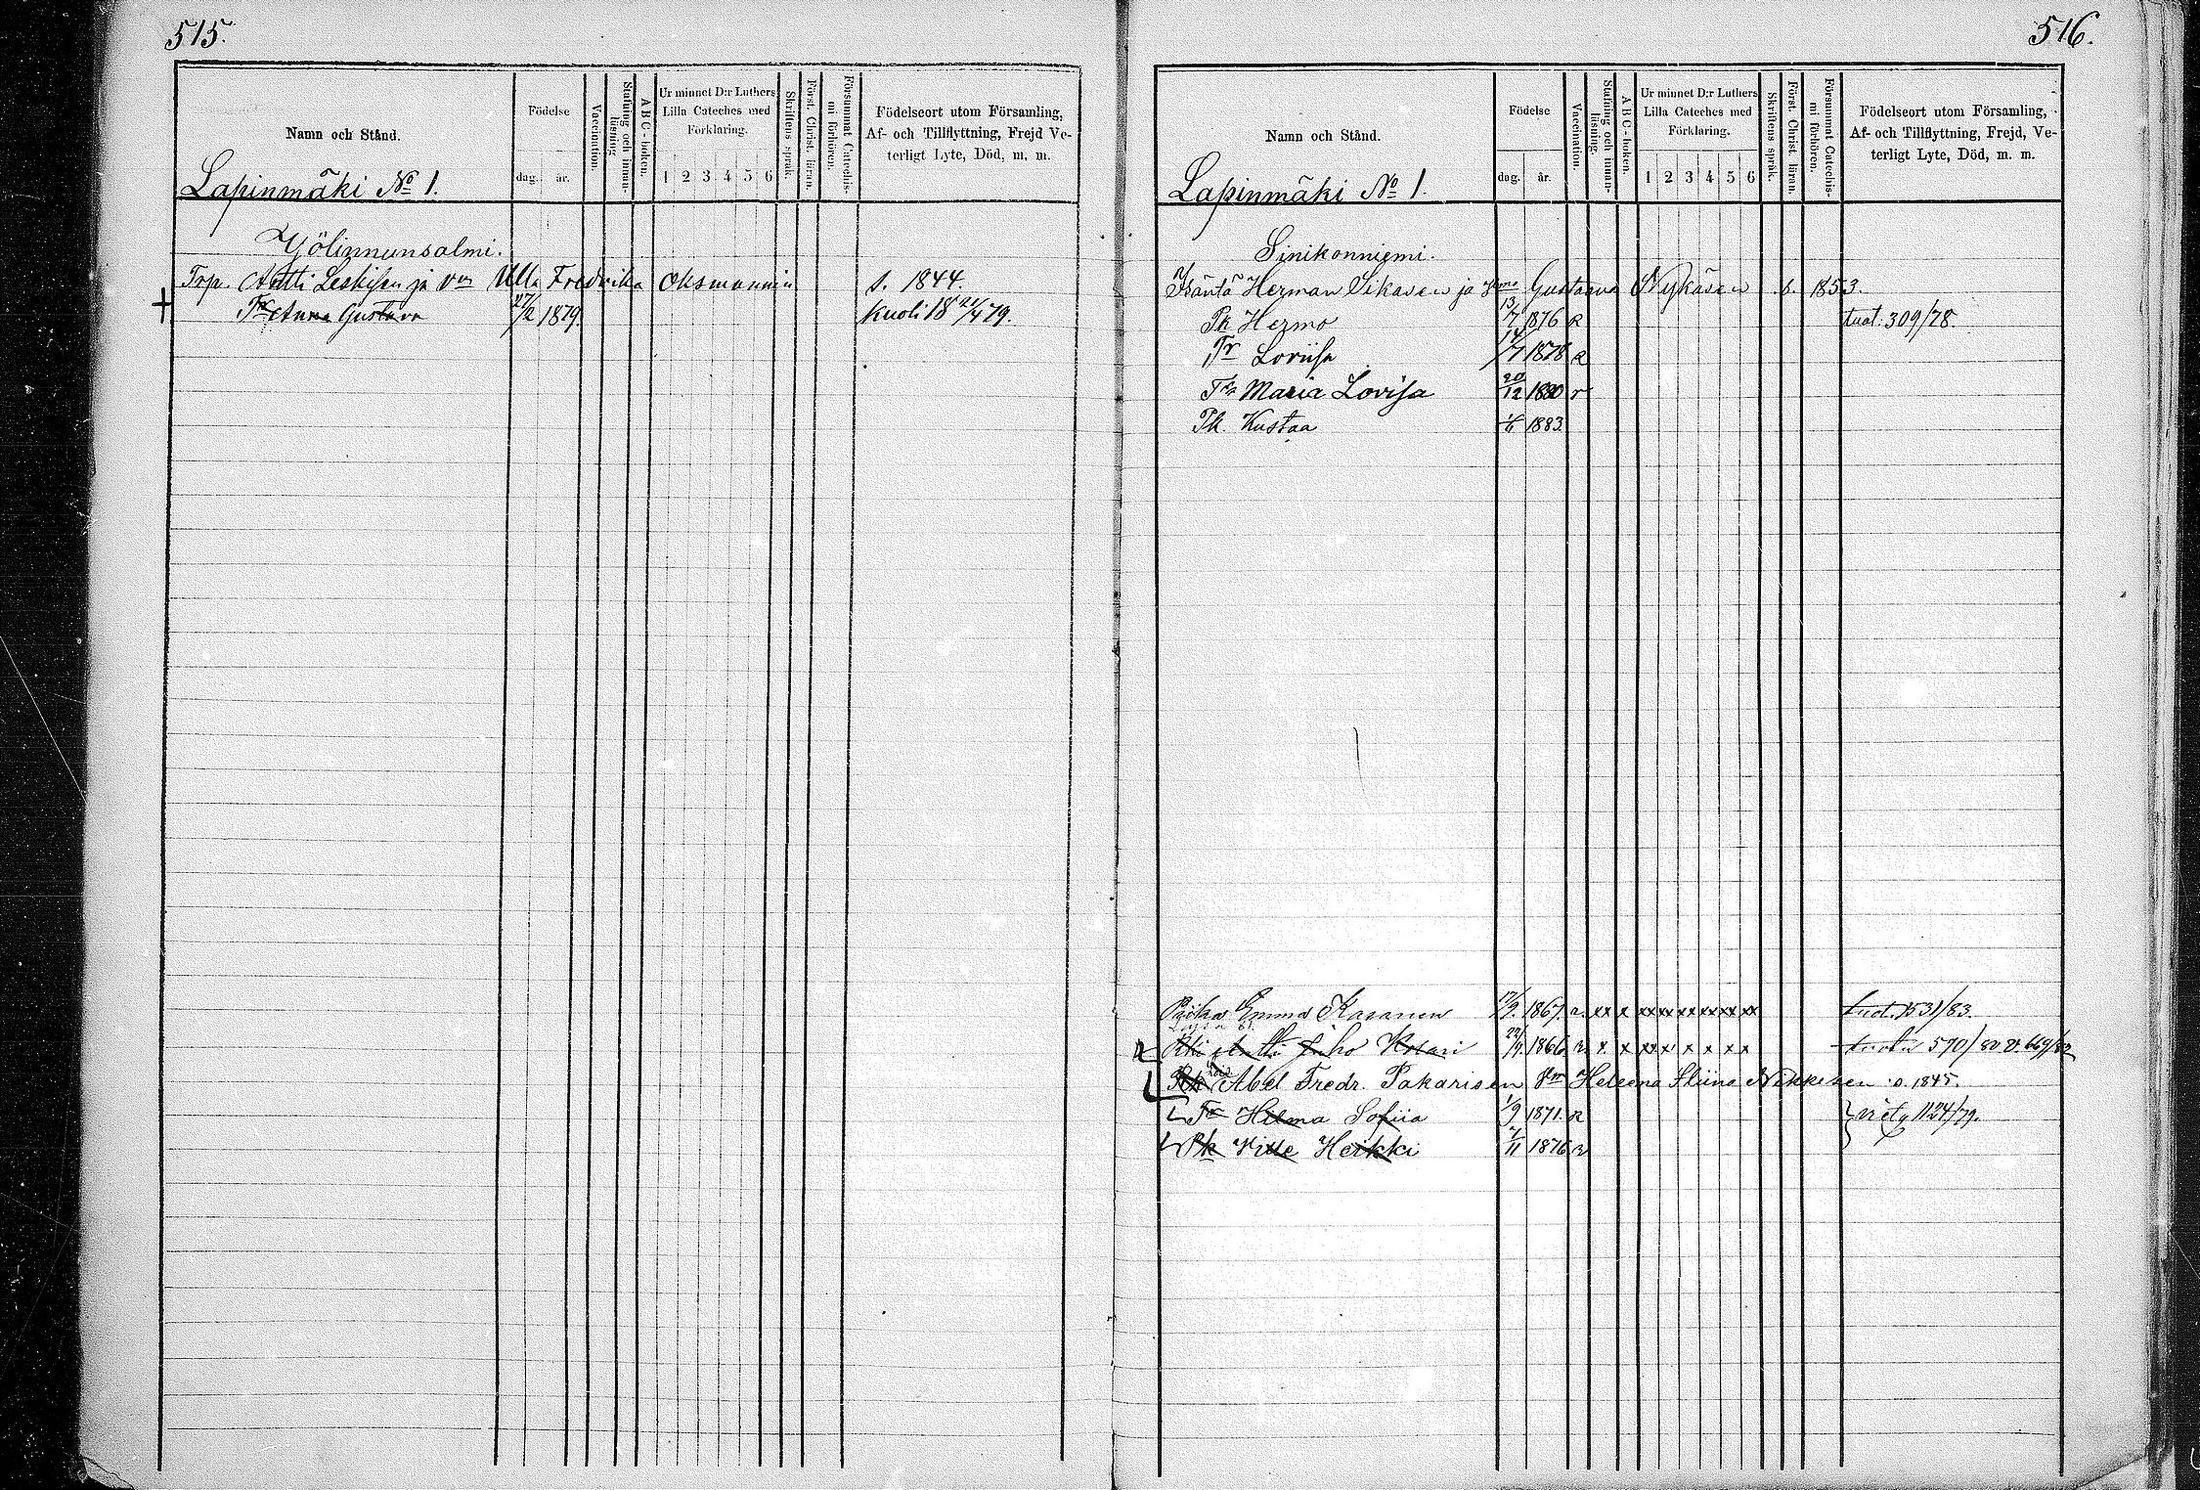 515.
Namn och Stånd.
Födelse
dag. år.
Vaccination.
Stafning och innan-läsning
ABC-boken.
Ur minnet D:r Luthers
Lilla Cateches med
Förklaring.
1 2 3 4 5 6
Skriftens språk.
Först. Christ. läran.
Försummat Catechis-
mi förhören.
Födelseort utom Församling,
Af- och Tillflyttning, Frejd Ve-
terligt Lyte, Död, m. m.
Lapinmäki No 1.
Yölinnunsalmi.
Trp. Antti Leskisen ja vm Ulla Fredrika Oksmannin s. 1844.
Tr Anna Gustava 27/2 1879. kuoli 18 21/4 79.
516.
Namn och Stånd.
Födelse
dag. år.
Vaccination.
Stafning och innan-läsning.
ABC-boken.
Ur minnet D:r Luthers
Lilla Cateches med
Förklaring.
1 2 3 4 5 6
Skriftens språk.
Först. Christ. läran.
Försummat Catechis-
mi förhören.
Födelseort utom Församling,
Af- och Tillflyttning, Frejd, Ve-
terligt Lyte, Död, m. m.
Lapinmäki No 1.
Sinikonniemi.
Isäntä Herman Sikasen ja Gustaava Nykäsen s. 1853.
Pk Hermo 13/7 1876 R tuat. 309/78.
Tr Loviisa /7 1878 R
Tr Maria Lovisa 20/12 1880 r
Pk. Kustaa 1883.
Emma Kasanen 17/9. 1867. xx x xx xx xx xx xx xx 1531/83.
Antti Juho Kotari 22/9. 1866 x x xx x x x x x 570/80
Abel Fredr. Pakarisen Heleena Stiina Nikkisen s. 1845.
Tr Helma Sofiia 1/9 1871. R 1124/79.
Pk Ville Heikki 7/11 1876